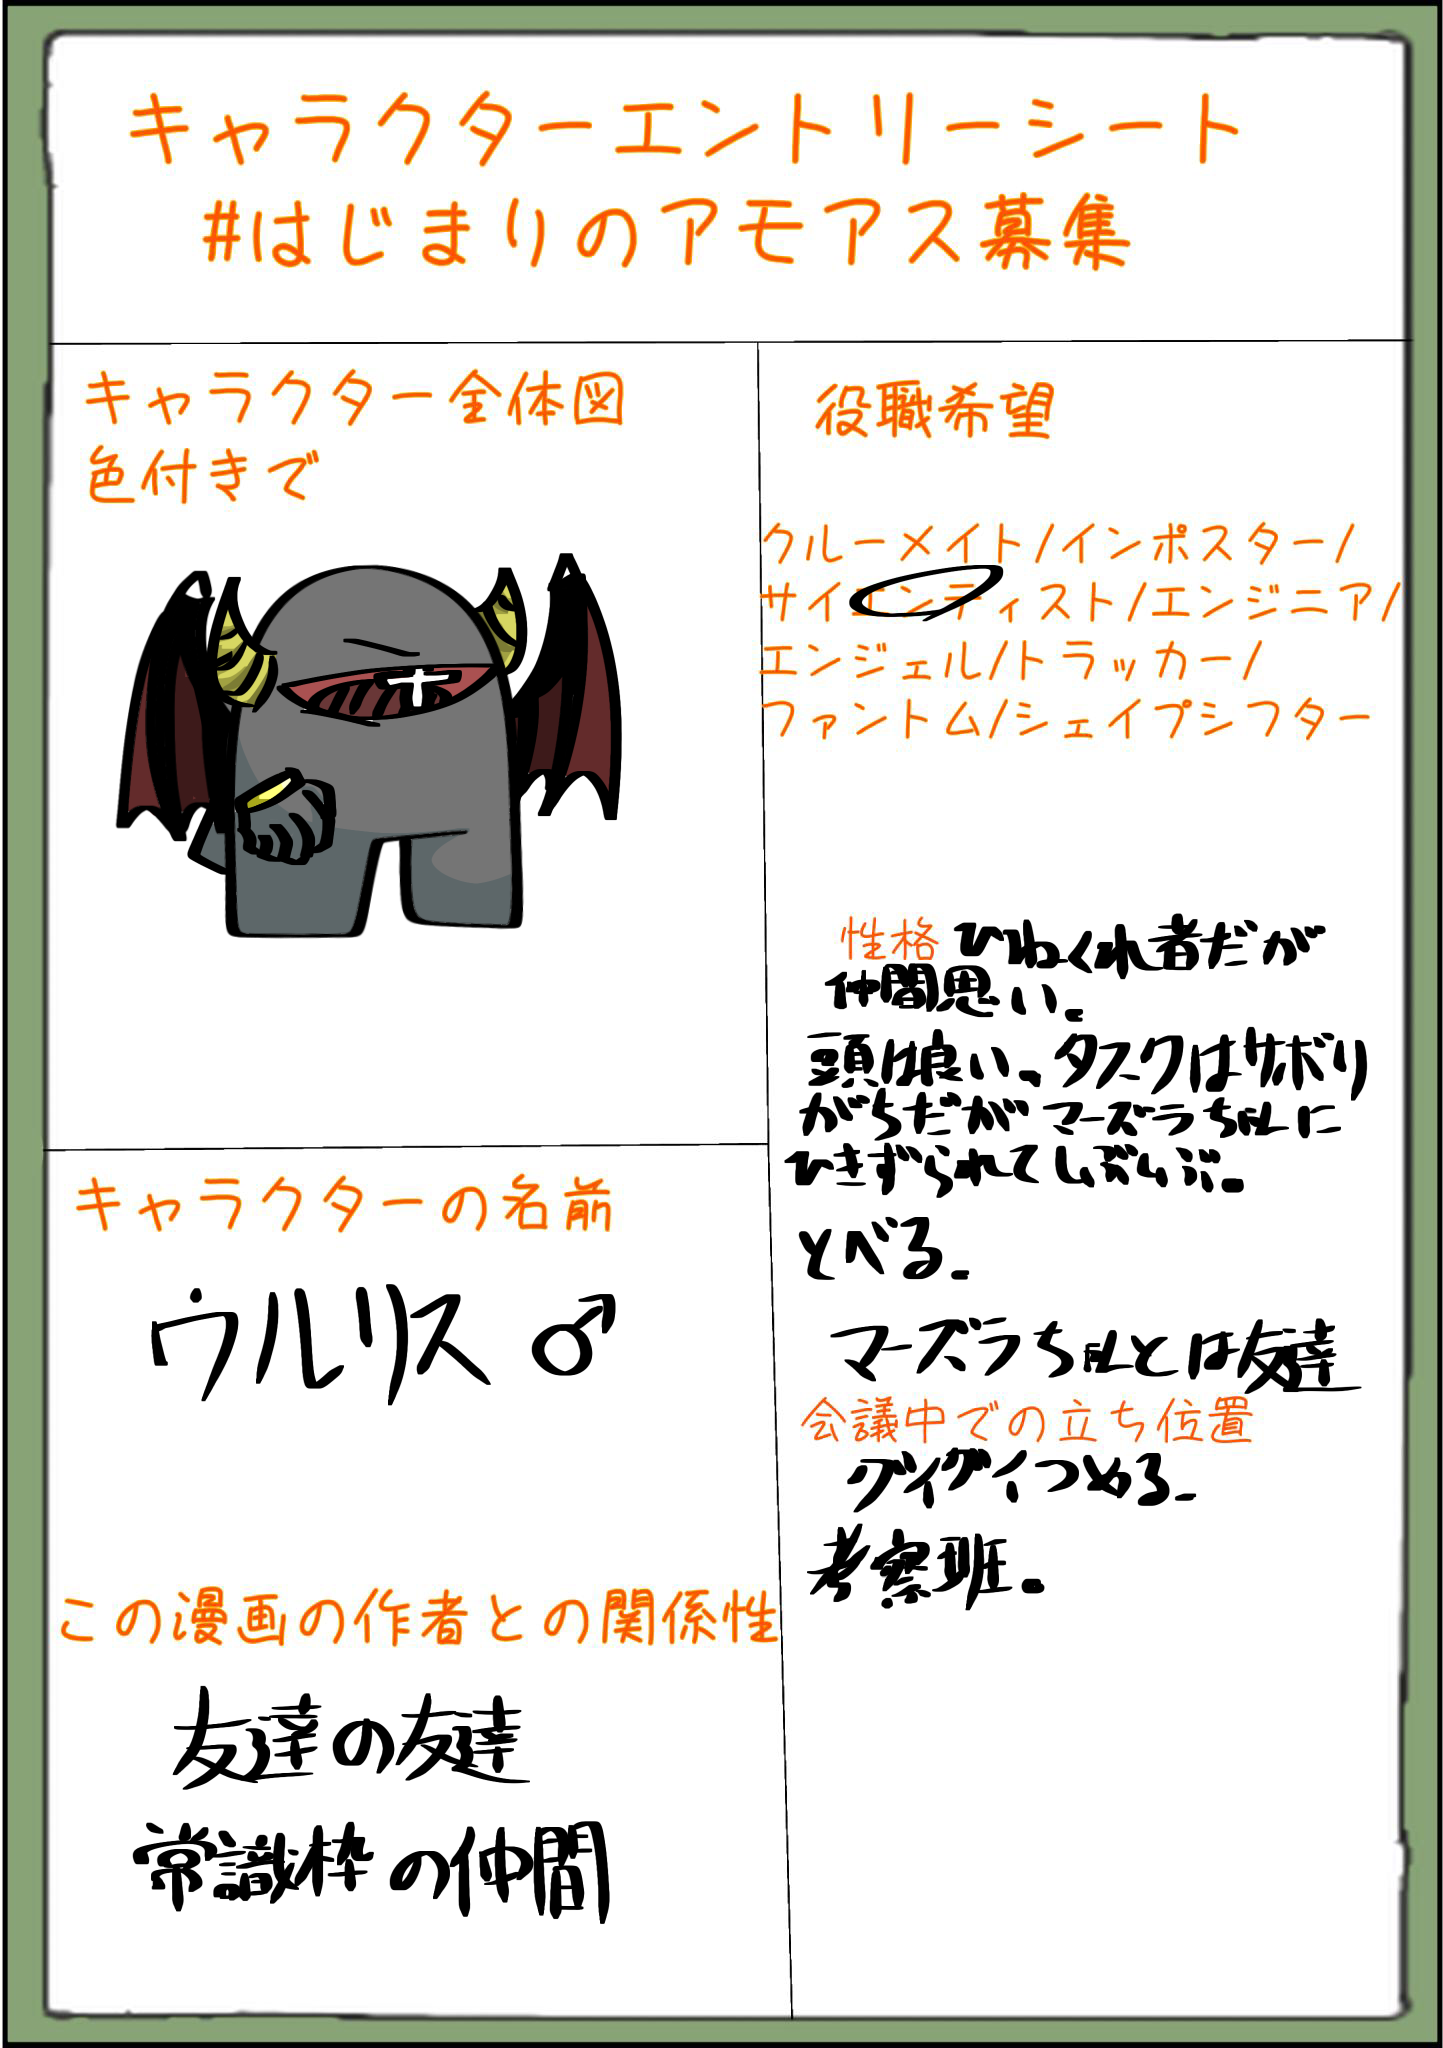 キャラクターエントリーシート
#はじまりのアモアス募集
キャラクター全体図
色付きで
役職希望
クルーメイト/インポスター/
サイエンティスト/エンジニア/
エンジェル/トラッカー/
ファントム/シェイプシフター
性格 ひねくれ者だが
仲間思い。
頭は良い。タスクはサボり
がちだが マーズラちゃんに
ひきずられてしぶしぶ。
とべる。
マーズラちゃんとは友達
会議中での立ち位置
グイグイつめる。
考察班。
キャラクターの名前
ウルリス ♂
この漫画の作者との関係性
友達の友達
常識枠の仲間